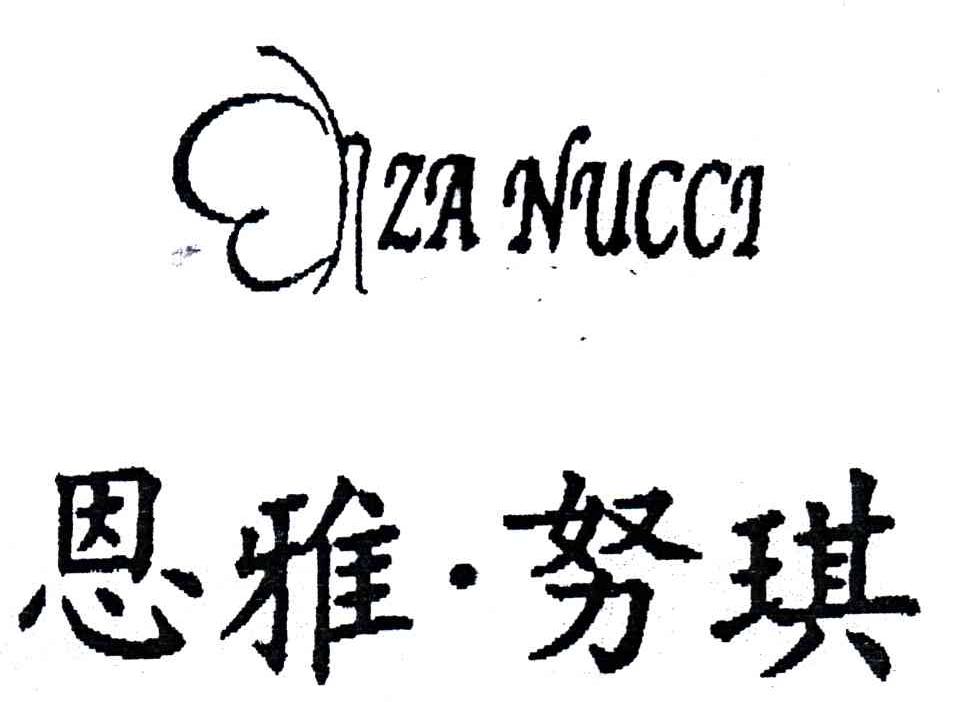 ZA NUCCI
恩雅·努琪